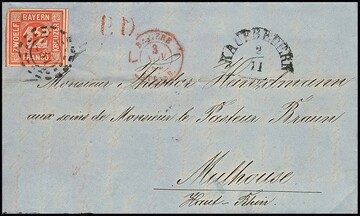 BAYERN
ZWOELF
12
FRANCO
P.D.
BAVIERE
3
KAUFBEUREN
2
11
Monsieur Theodor Heinzelmann
aux soins de Monsieur le Pasteur Braun
Mulhouse
Haut-Rhin